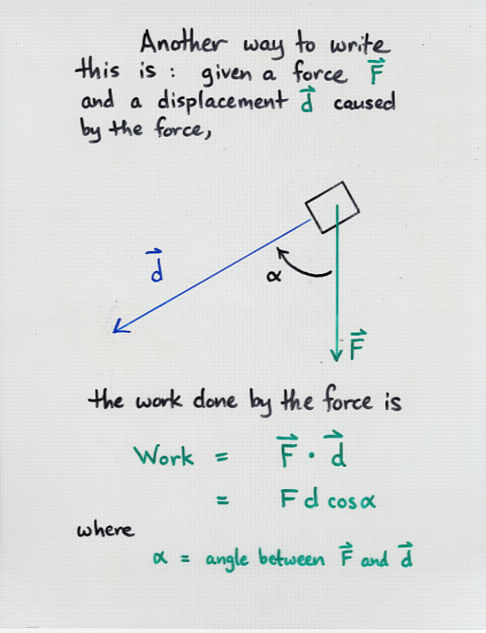 Another way to write
this is: given a force F⃗
and a displacement d⃗ caused
by the force,
d⃗
α
F⃗
the work done by the force is
Work = F⃗ · d⃗
= F d cosα
where
α = angle between F⃗ and d⃗